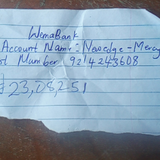 Wema Bank
Account Name:- Newedge - Mercy
Number: 9214243608
₦23,082.51